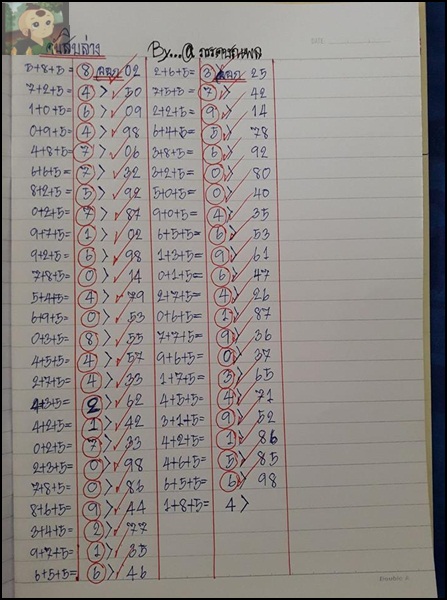 สิบล่าง
By...@
5+8+5= 8 ออก 02
7+2+5= 4 > ✓ 50
1+0+5= 6 > ✓ 09
0+9+5= 4 > ✓ 98
4+8+5= 7 > ✓ 06
6+6+5= 7 > ✓ 32
8+2+5= 5 > ✓ 92
0+2+5= 7 > ✓ 87
9+7+5= 1 > ✓ 02
9+2+5= 6 > ✓ 98
7+8+5= 0 > ✓ 14
5+4+5= 4 > ✓ 79
6+9+5= 0 > ✓ 53
0+3+5= 8 > ✓ 55
4+5+5= 4 > ✓ 57
2+7+5= 4 > ✓ 33
4+3+5= 2 > ✓ 62
4+2+5= 1 > ✓ 42
0+2+5= 7 > ✓ 33
2+3+5= 0 > ✓ 98
7+8+5= 0 > ✓ 86
8+6+5= 9 > ✓ 44
3+4+5= 2 > ✓ 77
9+7+5= 1 > ✓ 35
6+5+5= 6 > ✓ 46
2+6+5= 3 ออก 25
7+5+5= 7 > ✓ 42
2+2+5= 9 > ✓ 14
6+4+5= 5 > ✓ 78
3+8+5= 6 > ✓ 92
3+2+5= 0 > ✓ 80
5+0+5= 0 > ✓ 40
9+0+5= 4 > ✓ 35
6+5+5= 6 > ✓ 53
1+3+5= 9 > ✓ 61
0+1+5= 6 > ✓ 47
2+7+5= 4 > ✓ 26
0+6+5= 1 > ✓ 87
7+7+5= 9 > ✓ 36
9+6+5= 0 > ✓ 37
1+7+5= 3 > ✓ 65
4+5+5= 4 > ✓ 71
3+1+5= 9 > ✓ 52
4+2+5= 1 > ✓ 86
4+6+5= 5 > ✓ 85
6+5+5= 6 > ✓ 98
1+8+5= 4 >